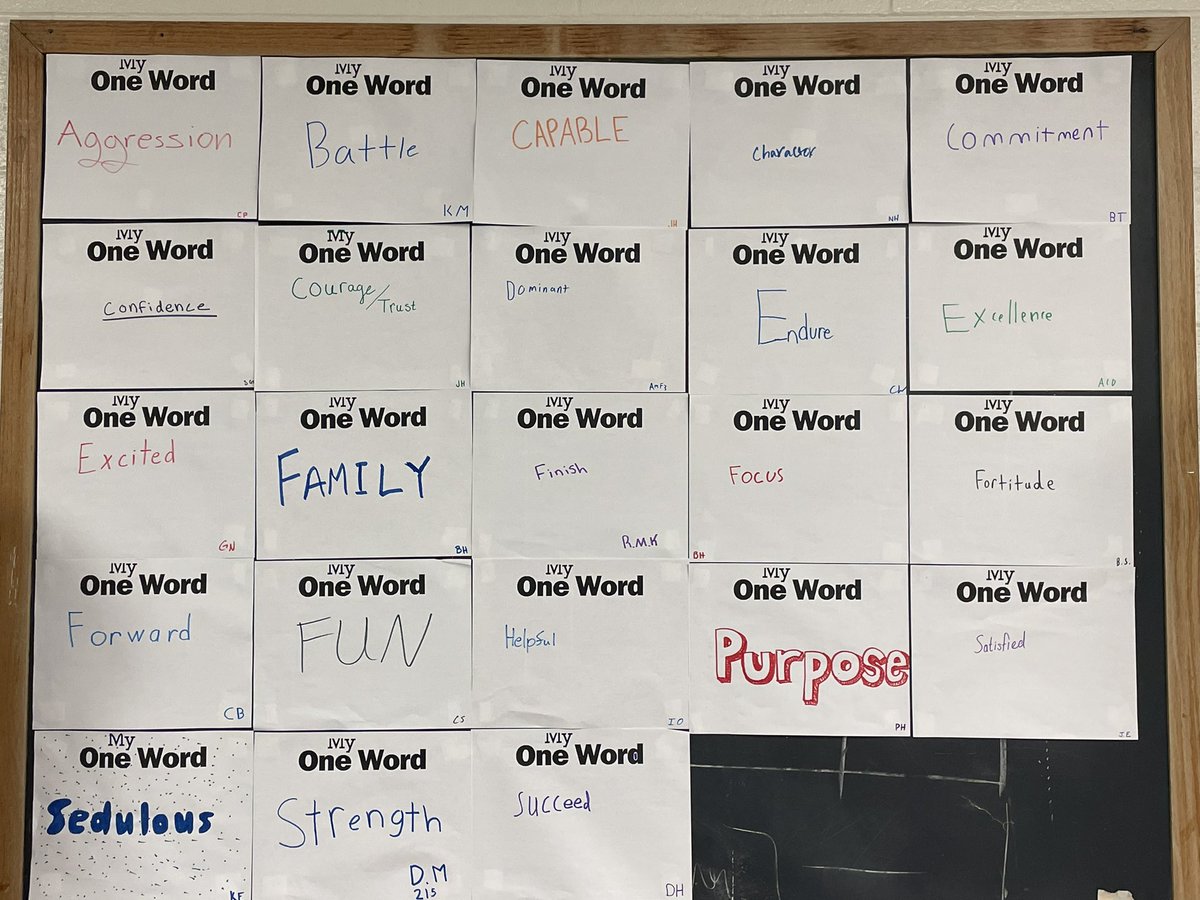 My
One Word
Aggression
CP
My
One Word
Battle
KM
My
One Word
CAPABLE
JH
My
One Word
Character
NH
My
One Word
Commitment
BT
My
One Word
Confidence
My
One Word
Courage/Trust
JH
My
One Word
Dominant
My
One Word
Endure
My
One Word
Excellence
My
One Word
Excited
GN
My
One Word
FAMILY
BH
My
One Word
Finish
R.M.K
My
One Word
Focus
BH
My
One Word
Fortitude
B.S.
My
One Word
Forward
CB
My
One Word
FUN
CS
My
One Word
Helpful
IO
My
One Word
Purpose
PH
My
One Word
Satisfied
J.E
My
One Word
Sedulous
KF
My
One Word
Strength
D.M
215
My
One Word
Succeed
DH